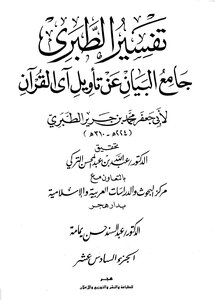 تفسير الطبري
جامع البيان عن تأويل آي القرآن
لأبي جعفر محمد بن جرير الطبري
(٢٢٤هـ - ٣١٠هـ)
تحقيق
الدكتور عبد الله بن عبد المحسن التركي
بالتعاون مع
مركز البحوث والدراسات العربية والإسلامية
بدار هجر
الدكتور عبد السند حسن يمامة
الجزء السادس عشر
هجر
للطباعة والنشر والتوزيع والإعلان